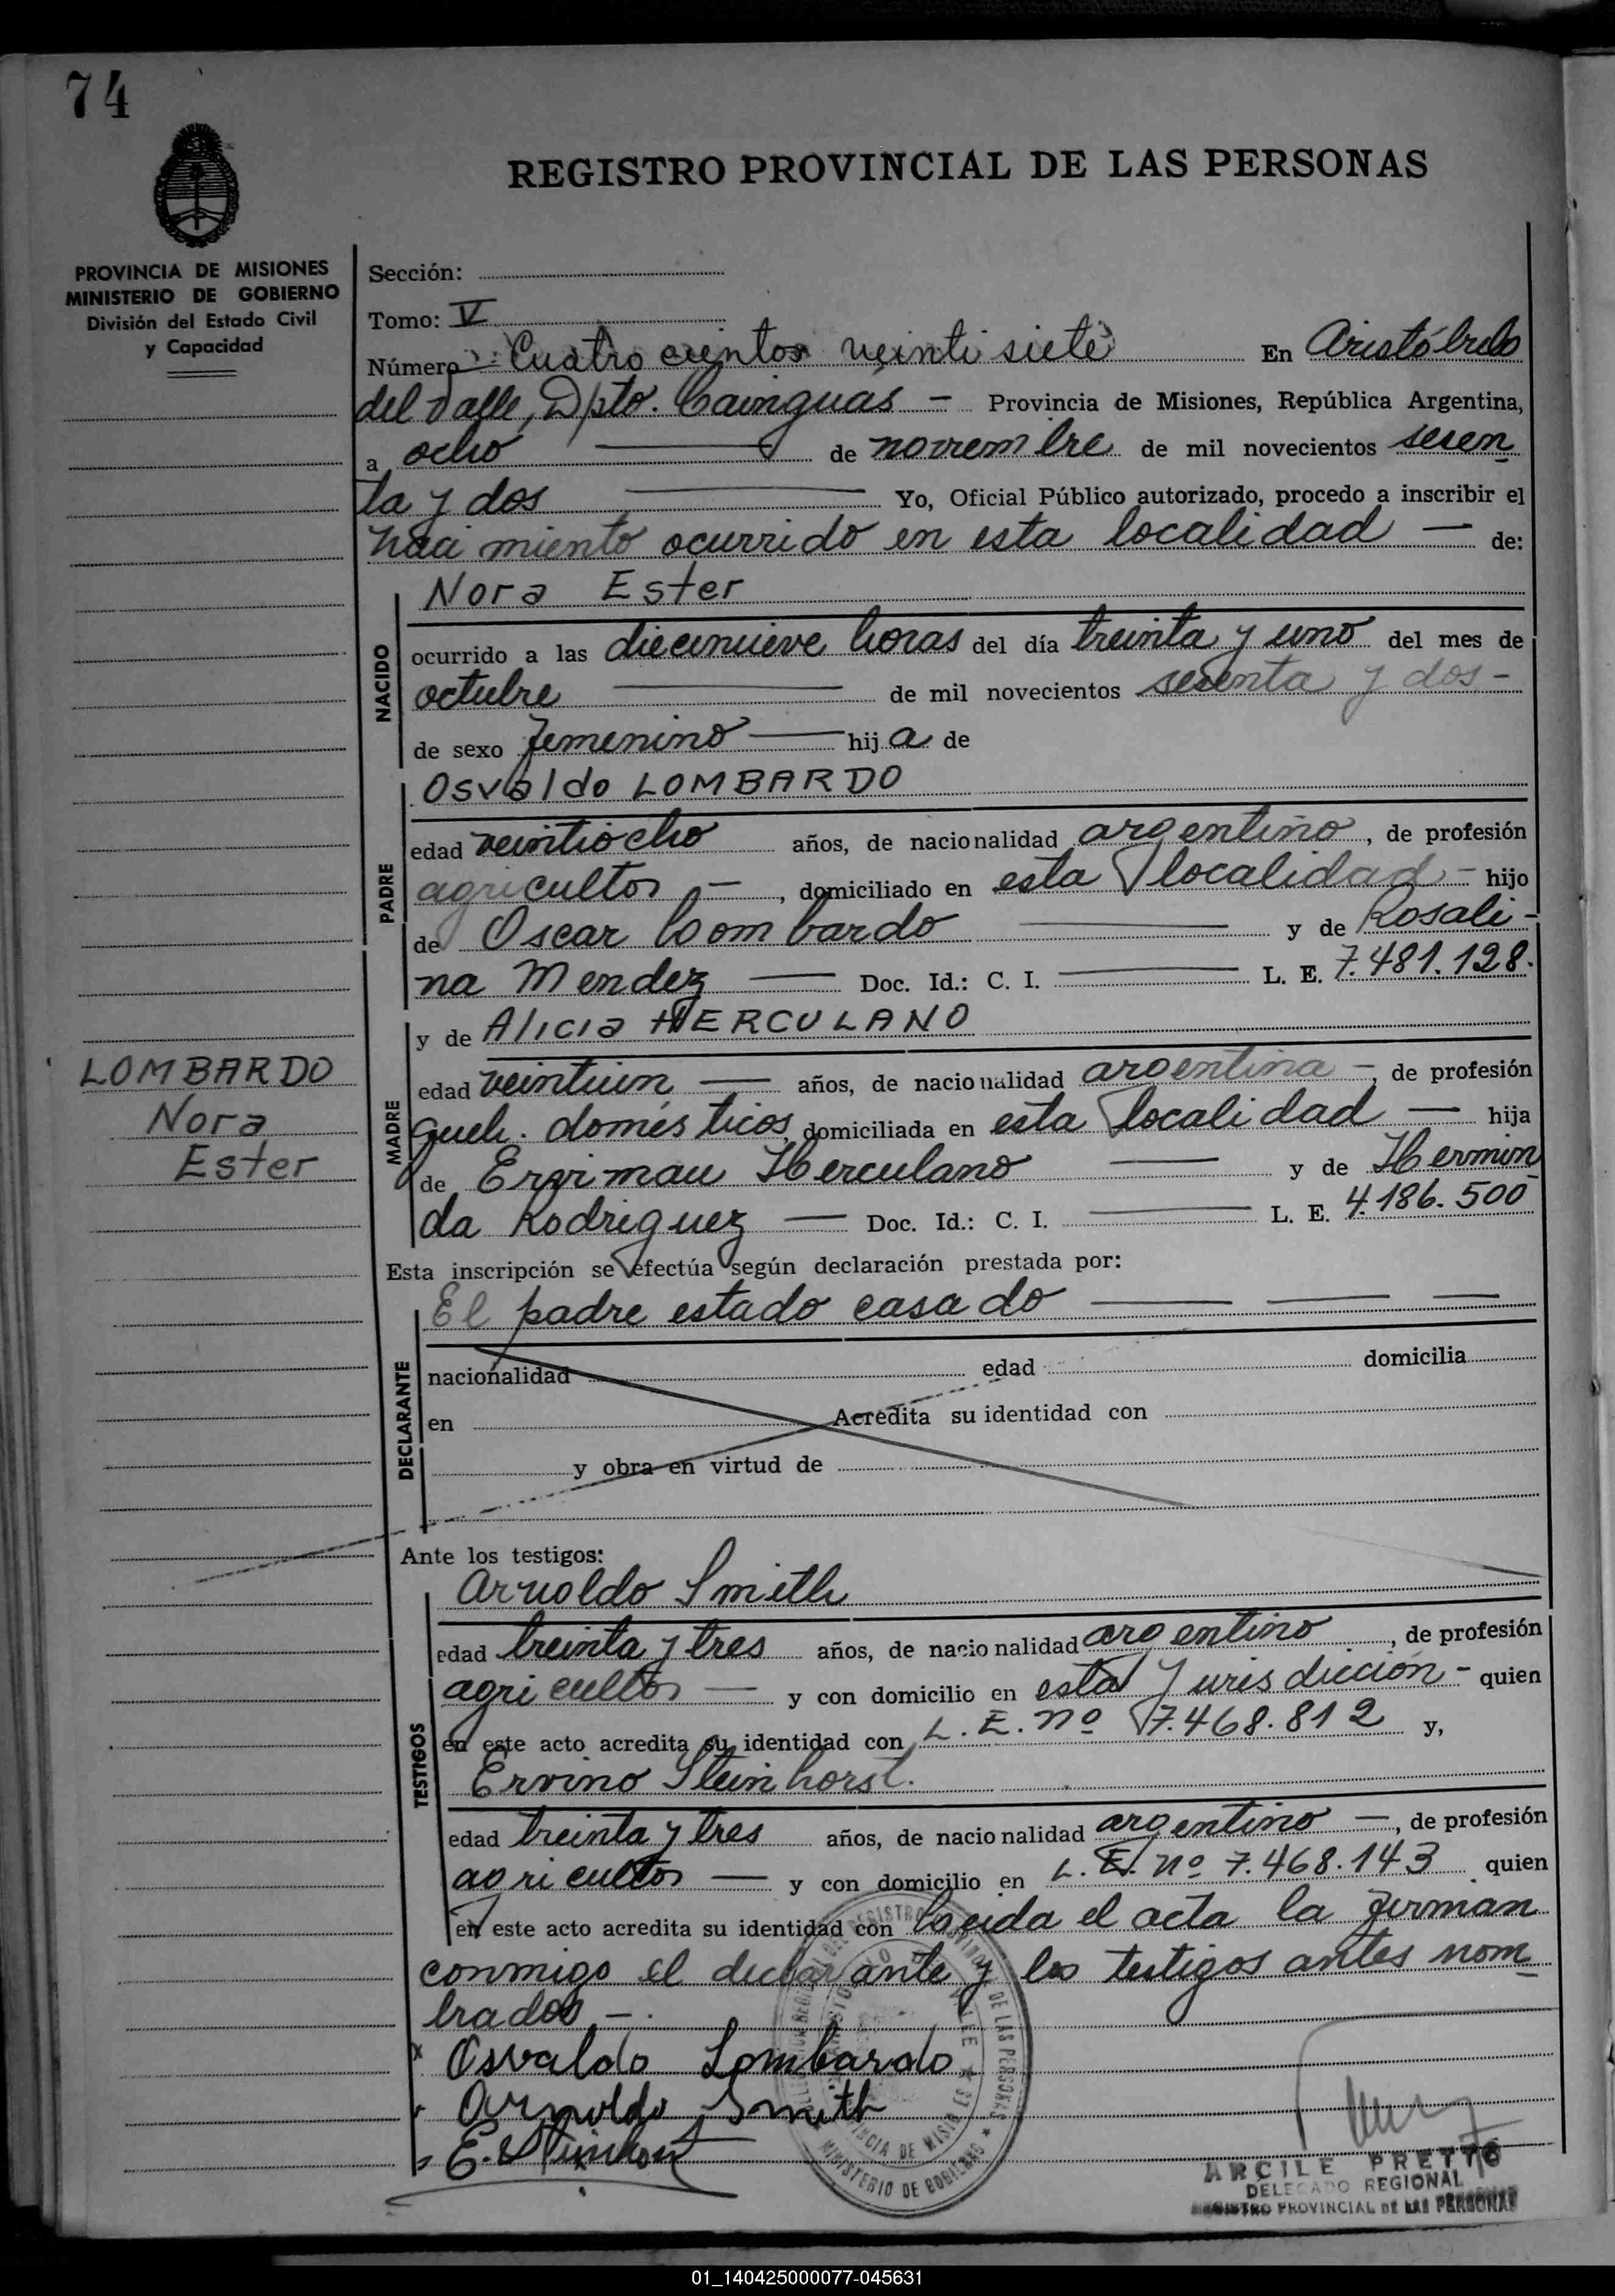 74
REGISTRO PROVINCIAL DE LAS PERSONAS
PROVINCIA DE MISIONES
MINISTERIO DE GOBIERNO
División del Estado Civil
y Capacidad
Sección:
Tomo: V
Número: Cuatro cientos veinti siete En Aristóbulo
del Valle, Dpto. Cainguás - Provincia de Misiones, República Argentina,
a ocho de noviembre de mil novecientos seten
ta y dos Yo, Oficial Público autorizado, procedo a inscribir el
naci miento ocurrido en esta localidad — de:
Nora Ester
NACIDO
ocurrido a las diecinueve horas del día treinta y uno del mes de
octubre de mil novecientos setenta y dos -
de sexo femenino — hij a de
Osvaldo LOMBARDO
PADRE
edad veintiocho años, de nacionalidad argentino, de profesión
agricultor —, domiciliado en esta localidad - hijo
de Oscar Lombardo y de Rosali-
na Mendez — Doc. Id.: C. I. — L. E. 7.481.128.
y de Alicia HERCULANO
LOMBARDO
Nora
Ester
MADRE
edad veintiun — años, de nacionalidad argentina -, de profesión
queh. domésticos, domiciliada en esta localidad — hija
de Herculano — y de Hermin
da Rodriguez — Doc. Id.: C. I. — L. E. 4.186.500
Esta inscripción se efectúa según declaración prestada por:
El padre estado casado — — —
DECLARANTE
nacionalidad edad domicilia
en Acredita su identidad con
y obra en virtud de
Ante los testigos:
Arnoldo Smith
TESTIGOS
edad treinta y tres años, de nacionalidad argentino, de profesión
agricultor — y con domicilio en esta Jurisdicción - quien
en este acto acredita su identidad con L. E. nº 7.468.812 y,
Ervino Steinhorst.
edad treinta y tres años, de nacionalidad argentino —, de profesión
agricultor — y con domicilio en L. E. nº 7.468.143 quien
en este acto acredita su identidad con Leida el acta la firman
conmigo el declarante y los testigos antes nom
brados -.
Osvaldo Lombardo
Arnoldo Smith
ARCILE PRETTO
DELEGADO REGIONAL
REGISTRO PROVINCIAL DE LAS PERSONAS
MINISTERIO DE GOBIERNO
01_140425000077-045631